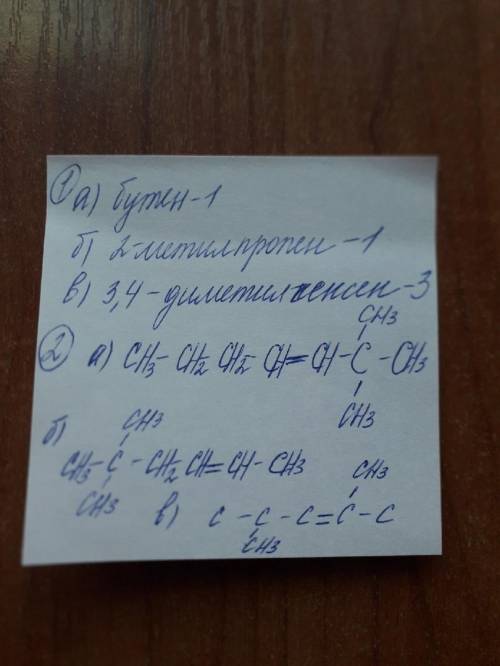 1 а) бутен-1
б) 2-метилпропен-1
в) 3,4-диметилгексен-3
CH3
2 а) CH3-CH2 CH2-CH=CH-C-CH3
CH3
CH3
б) CH3-C-CH2 CH=CH-CH3
CH3
CH3
в) C-C-C=C-C
CH3